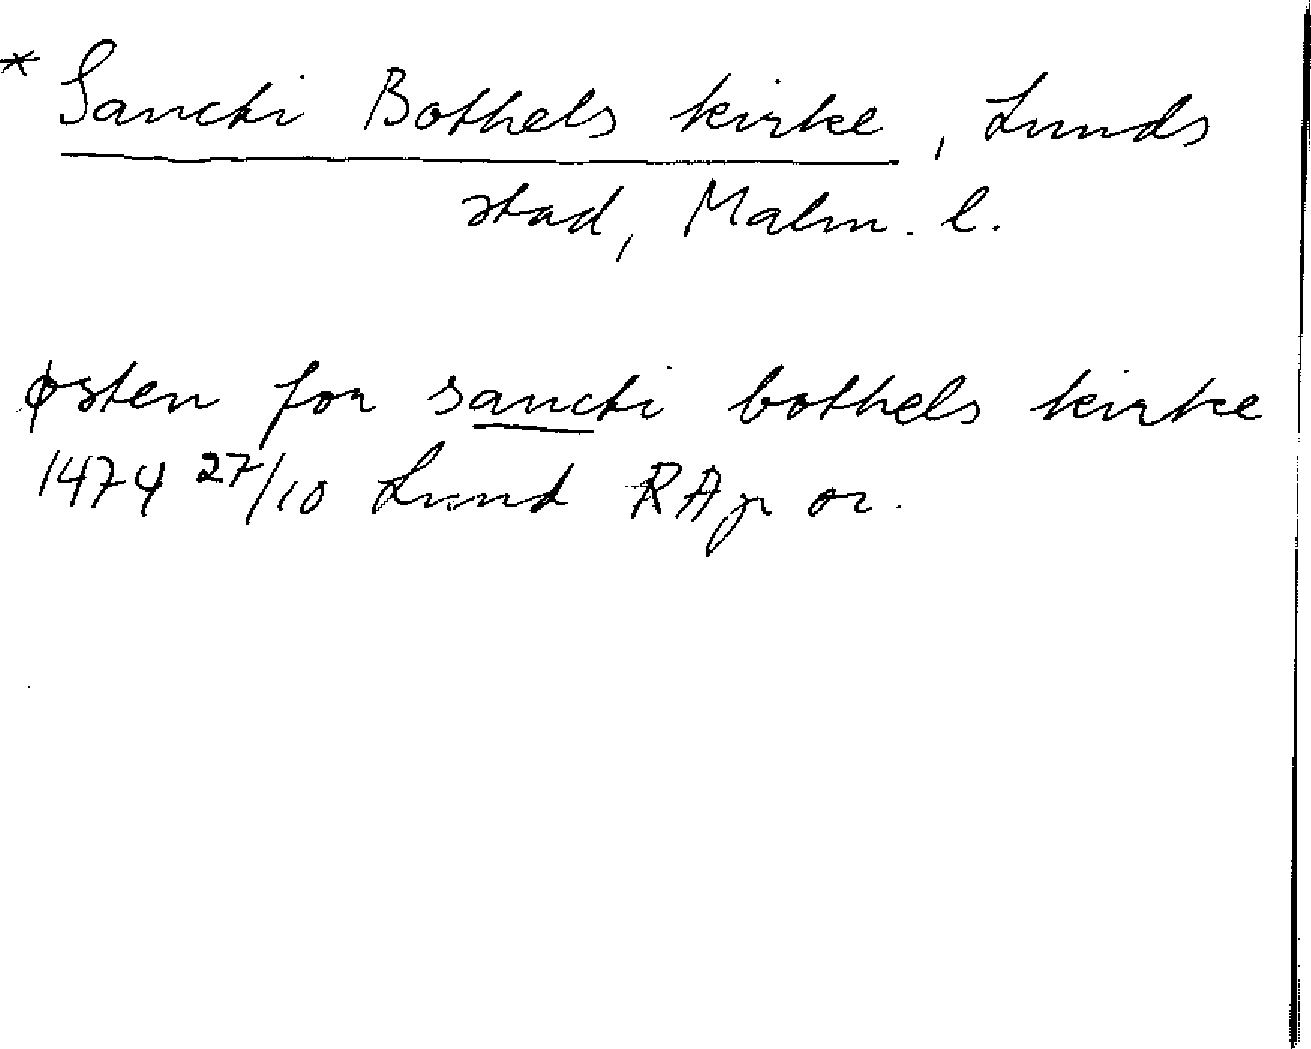 * Sancti Bothels kirke, Lunds
stad, Malm. l.
østen for sancti bothels kirke
1474 27/10 Lund RAp or.